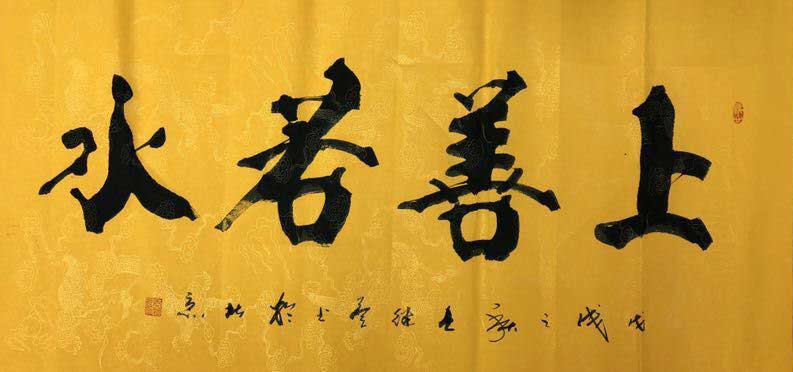 上善若水
戊戌之秋书於北京